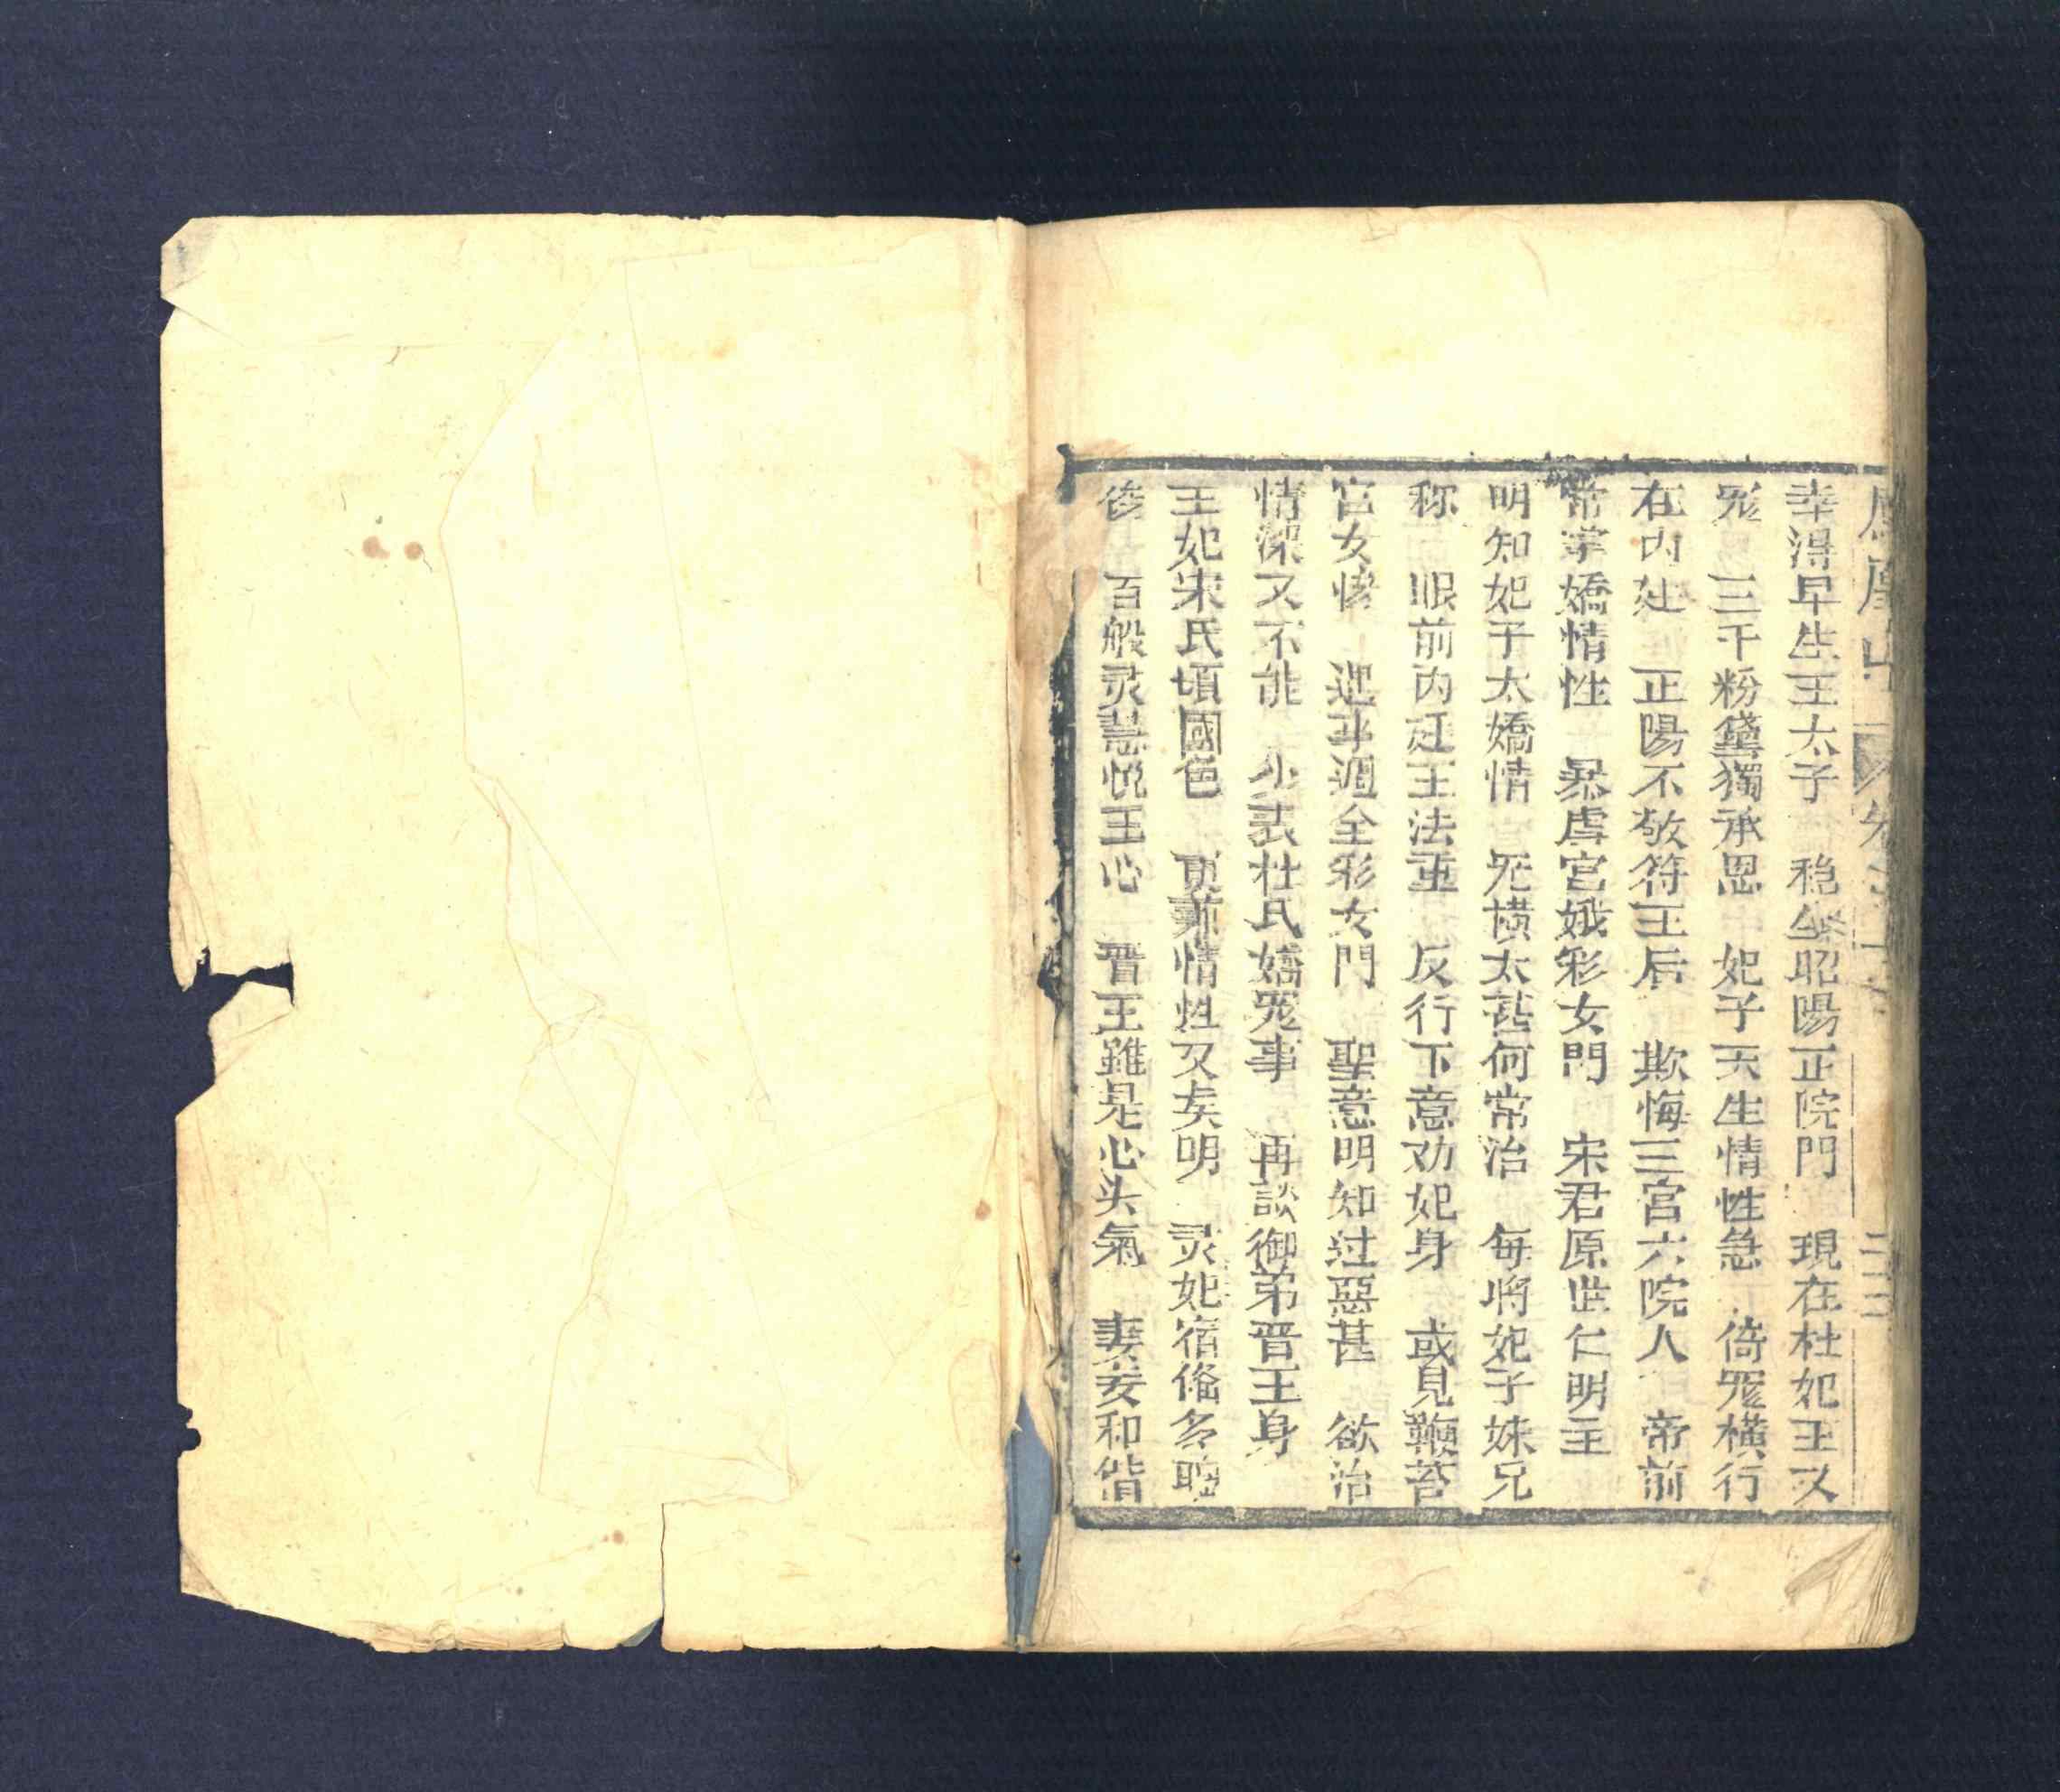 幸得早生王太子 稳坐昭陽正院門 現在杜妃王又
三千粉黛獨承恩 妃子天生情性急 倚寃橫行
在内廷 正陽不敬符王后 欺悔三宫六院人 帝前
常掌嬌情性 暴虐宫娥彩女門 宋君原世仁明主
明知妃子太嬌情 橫太甚何常治 每將妃子妹兄
称 眼前内廷王法重 反行下意劝妃身 或見鞭苔
宫女慘 遲事週全彩女門 聖意明知过惡甚 欲治
情深又不能 小表杜氏嬌寃事 再談御弟晋王身
王妃宋氏頃國色 更兼情性又矣明 灵妃宿俻多
後 百般灵慧悦王心 晋王雖是心头氣 妻妾和偕